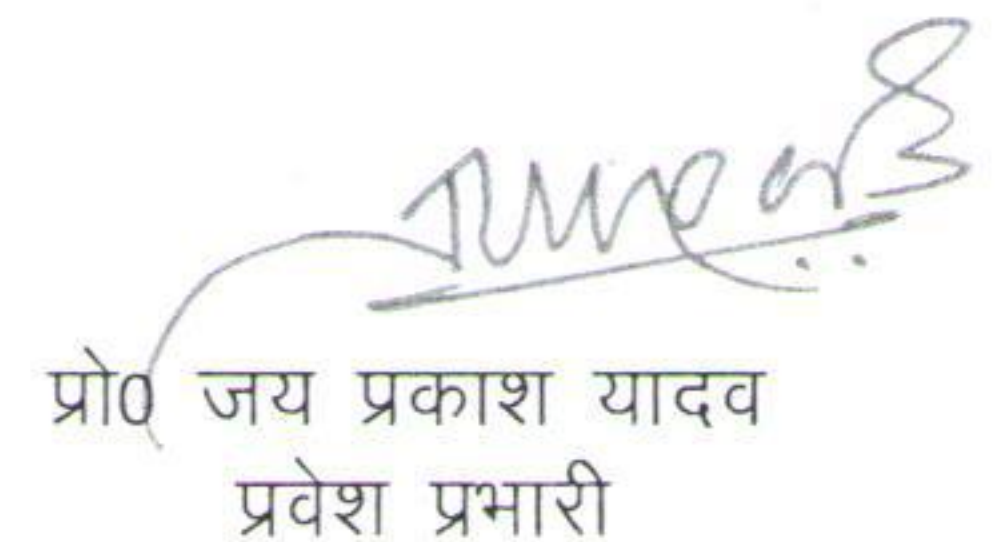 प्रो0 जय प्रकाश यादव
प्रवेश प्रभारी